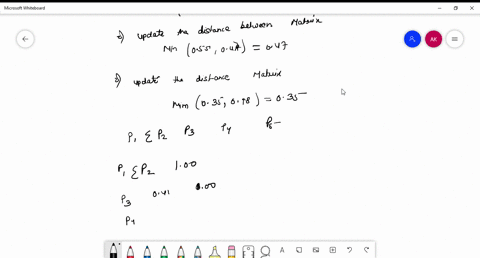 Microsoft Whiteboard
2) update the distance between Matrix
Min (0.55, 0.47) = 0.47
3) update the distance Matrix
Min (0.35, 0.98) = 0.35
P1 { P2 P3 P4 P5
P1 { P2 1.00
P3 0.41 1.00
P4
AK